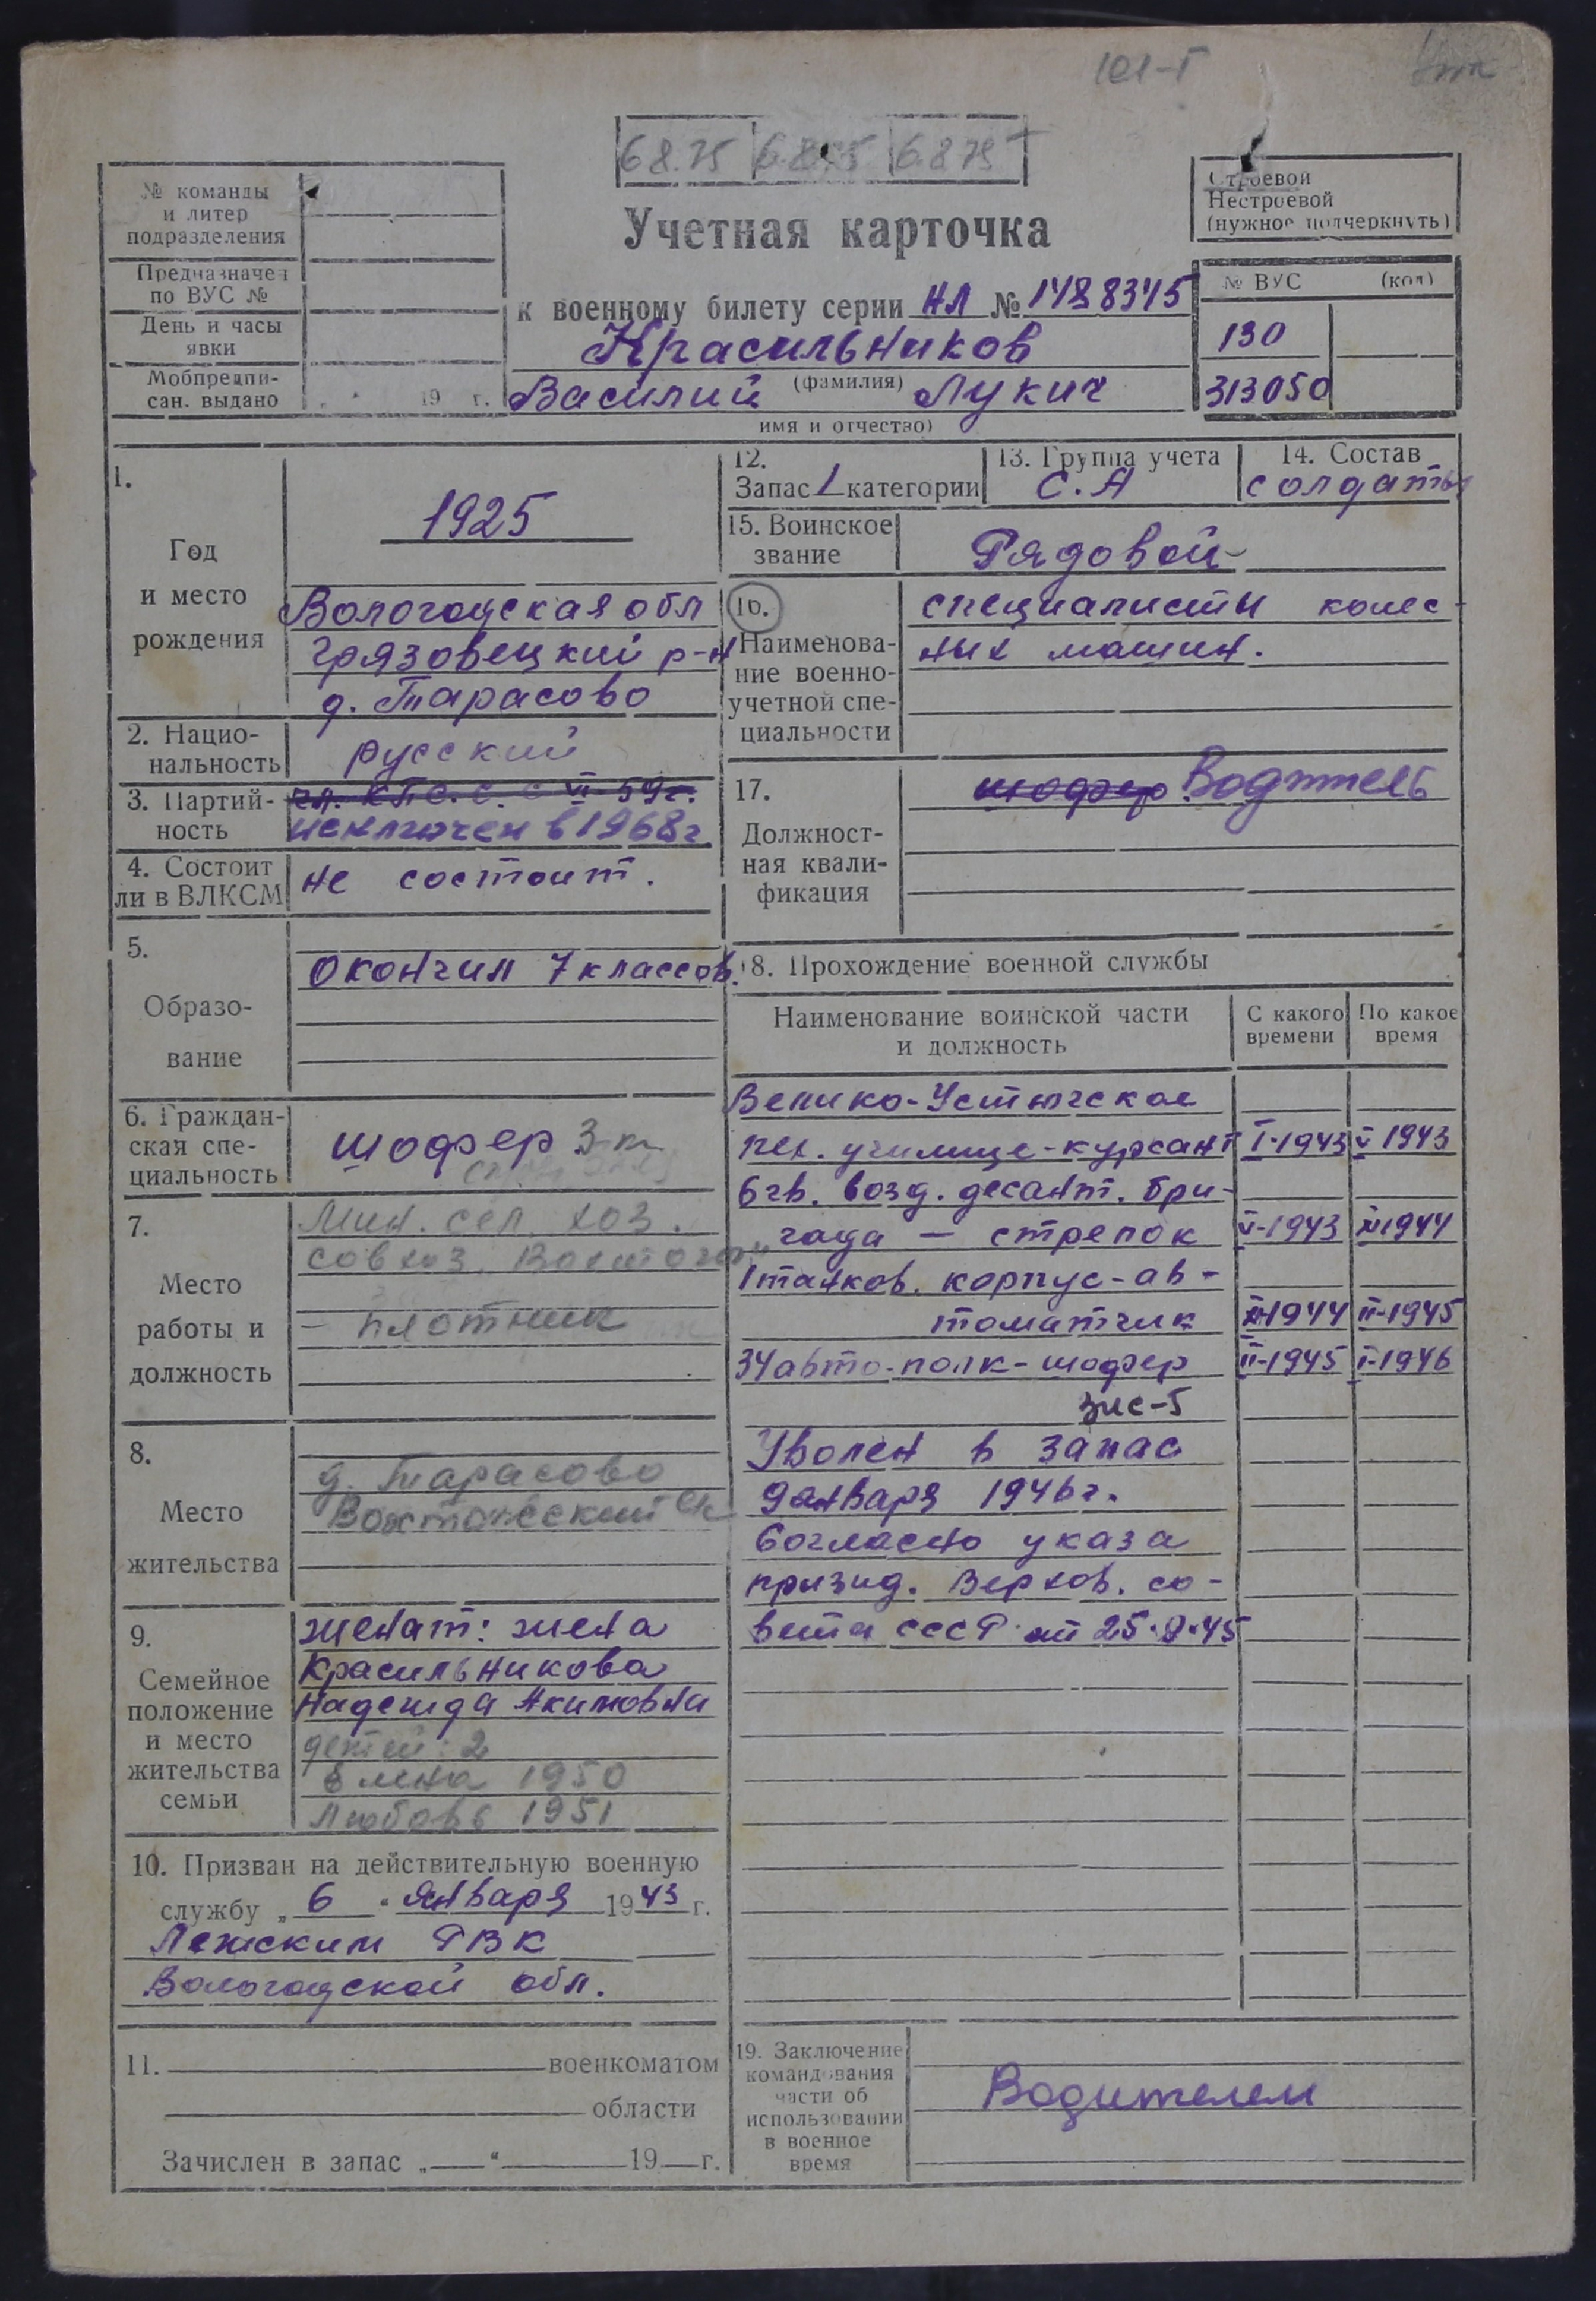 101-Г
6875 6875 6875
№ команды
и литер
подразделения
Предназначен
по ВУС №
День и часы
явки
Мобпредпи-
сан. выдано 19 г.
Строевой
Нестроевой
(нужное подчеркнуть)
Учетная карточка
к военному билету серии НЛ № 1488345
Красильников
(фамилия)
Василий Лукич
имя и отчество)
№ ВУС (код)
130
313050
1.
Год
и место
рождения
1925
Вологодская обл
Грязовецкий р-н
д. Тарасово
2. Нацио-
нальность
русский
3. Партий-
ность
чл. КПС.С. с VI-59г.
исключен в 1968г.
4. Состоит
ли в ВЛКСМ
не состоит.
5.
Образо-
вание
окончил 7 классов.
6. Граждан-
ская спе-
циальность
шофер 3 кл
7.
Место
работы и
должность
Мин. сел. хоз.
совхоз
- плотник
8.
Место
жительства
д. Тарасово
Вохтожский с/с
9.
Семейное
положение
и место
жительства
семьи
женат: жена
Красильникова
Надежда Акимовна
детей: 2
Елена 1950
Любовь 1951
10. Призван на действительную военную
службу „ 6 “ января 1943 г.
Лежским РВК
Вологодской обл.
11. военкоматом
области
Зачислен в запас „ “ 19 г.
12.
Запас 1 категории
13. Группа учета
С.А
14. Состав
солдаты
15. Воинское
звание
Рядовой
16.
Наименова-
ние военно-
учетной спе-
циальности
специалисты колес-
ных машин.
17.
Должност-
ная квали-
фикация
шофер Водитель
18. Прохождение военной службы
Наименование воинской части
и должность
С какого
времени
По какое
время
Велико-Устюгское
пех. училище-курсант I-1943 V 1943
6 гв. возд. десант. бри-
гада — стрелок V-1943 XI 1944
1 танков. корпус-ав-
томатчик XI-1944 II-1945
34 авто-полк-шофер II-1945 I-1946
ЗИС-5
Уволен в запас
9 января 1946г.
Согласно указа
призид. Верхов. со-
вета СССР от 25.9.45
19. Заключение
командования
части об
использовании
в военное
время
Водителем